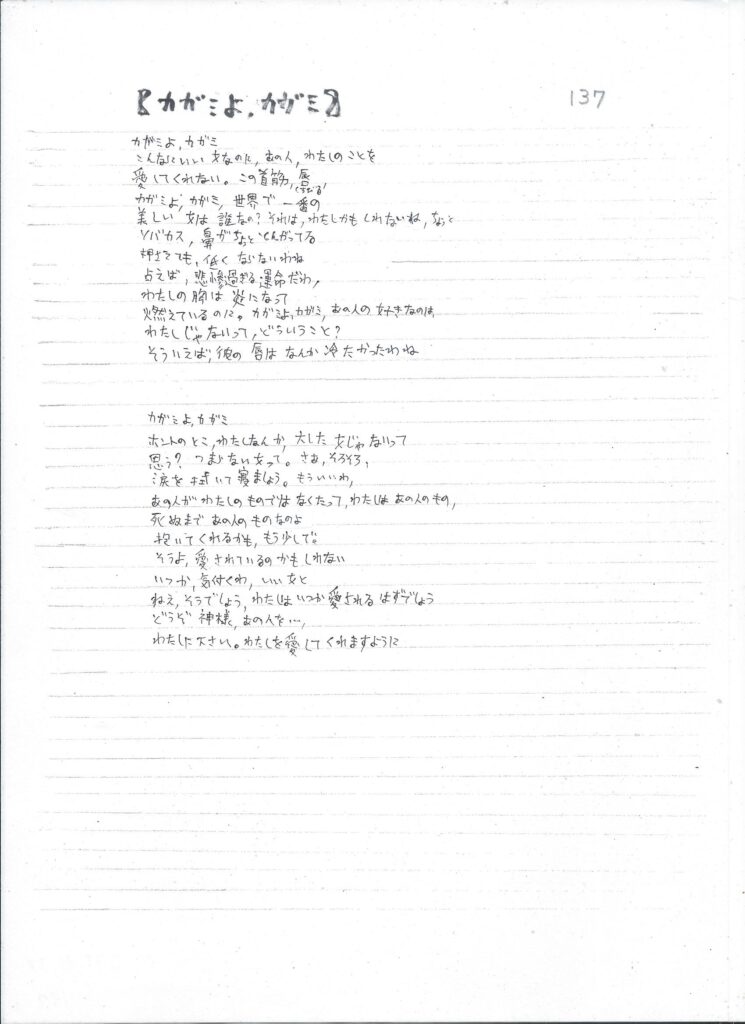 【カガミよ,カガミ】
137
カガミよ,カガミ
こんなにいい女なのに,あの人,わたしのことを
愛してくれない。この首筋,唇
カガミよ,カガミ,世界で一番の
美しい女は誰なの?それは,わたしかもしれないね,なぁと
ソバカス,鼻がなぁとんがってる
押さえても,低くならないわね
占えば,悲惨過ぎる運命だわ,
わたしの胸は炎になって
燃えているのに。カガミよ,カガミ,あの人の好きなのは,
わたしじゃないって,どういうこと?
そういえば,彼の唇はなんか冷たかったわね
カガミよ,カガミ
ホントのとこ,わたしなんか,大した女じゃないって
思う?つまらない女って。さぁ,そろそろ,
涙を拭いて寝ましょう。もういいわ,
あの人がわたしのものではなくたって,わたしはあの人のもの,
死ぬまであの人のものなのよ
抱いてくれるかも,もう少しで。
そうよ,愛されているのかもしれない
いつか,気付くわ,いい女と
ねえ,そうでしょう,わたしはいつか愛されるはずでしょう
どうぞ神様,あの人を…,
わたしに下さい。わたしを愛してくれますように